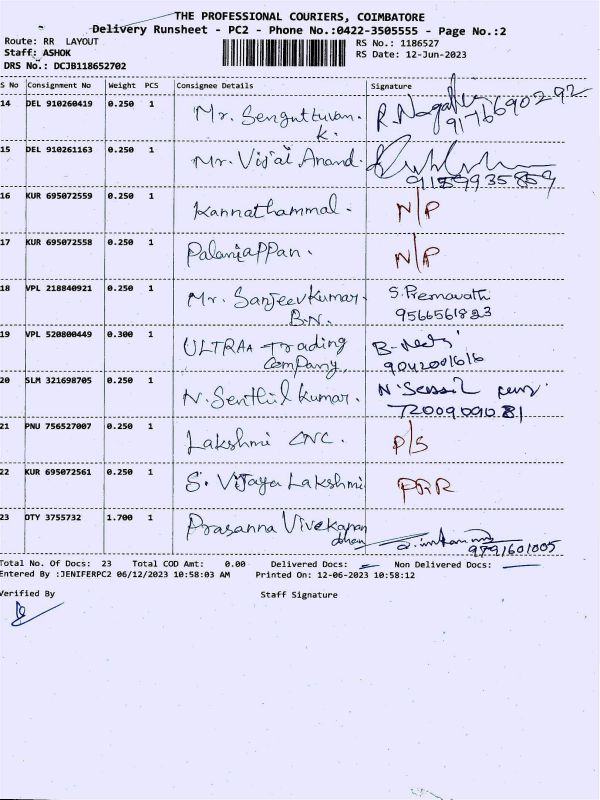 THE PROFESSIONAL COURIERS, COIMBATORE
Delivery Runsheet - PC2 - Phone No.:0422-3505555 - Page No.:2
Route: RR LAYOUT RS No.: 1186527
Staff: ASHOK RS Date: 12-Jun-2023
DRS No.: DCJB118652702
S No Consignment No Weight PCS Consignee Details Signature
14 DEL 910260419 0.250 1 Mr. Senguttuvan. K. R. 9176690292
15 DEL 910261163 0.250 1 Mr. Vijai Anand.
16 KUR 695072559 0.250 1 Kannathammal. N/P
17 KUR 695072558 0.250 1 Palaniappan. N/P
18 VPL 218840921 0.250 1 Mr. Sanjeevkumar. B.N. S. Premavathi 9566561823
19 VPL 520800449 0.300 1 ULTRAA Trading Company 9042001616
20 SLM 321698705 0.250 1 N. Senthil kumar. 7200909081
21 PNU 756527007 0.250 1 Lakshmi CNC. D/S
22 KUR 695072561 0.250 1 S. Vijaya Lakshmi
23 OTY 3755732 1.700 1 Prasanna Vivekanan dhan 9791601005
Total No. Of Docs: 23 Total COD Amt: 0.00 Delivered Docs: Non Delivered Docs:
Entered By :JENIFERPC2 06/12/2023 10:58:03 AM Printed On: 12-06-2023 10:58:12
Verified By Staff Signature